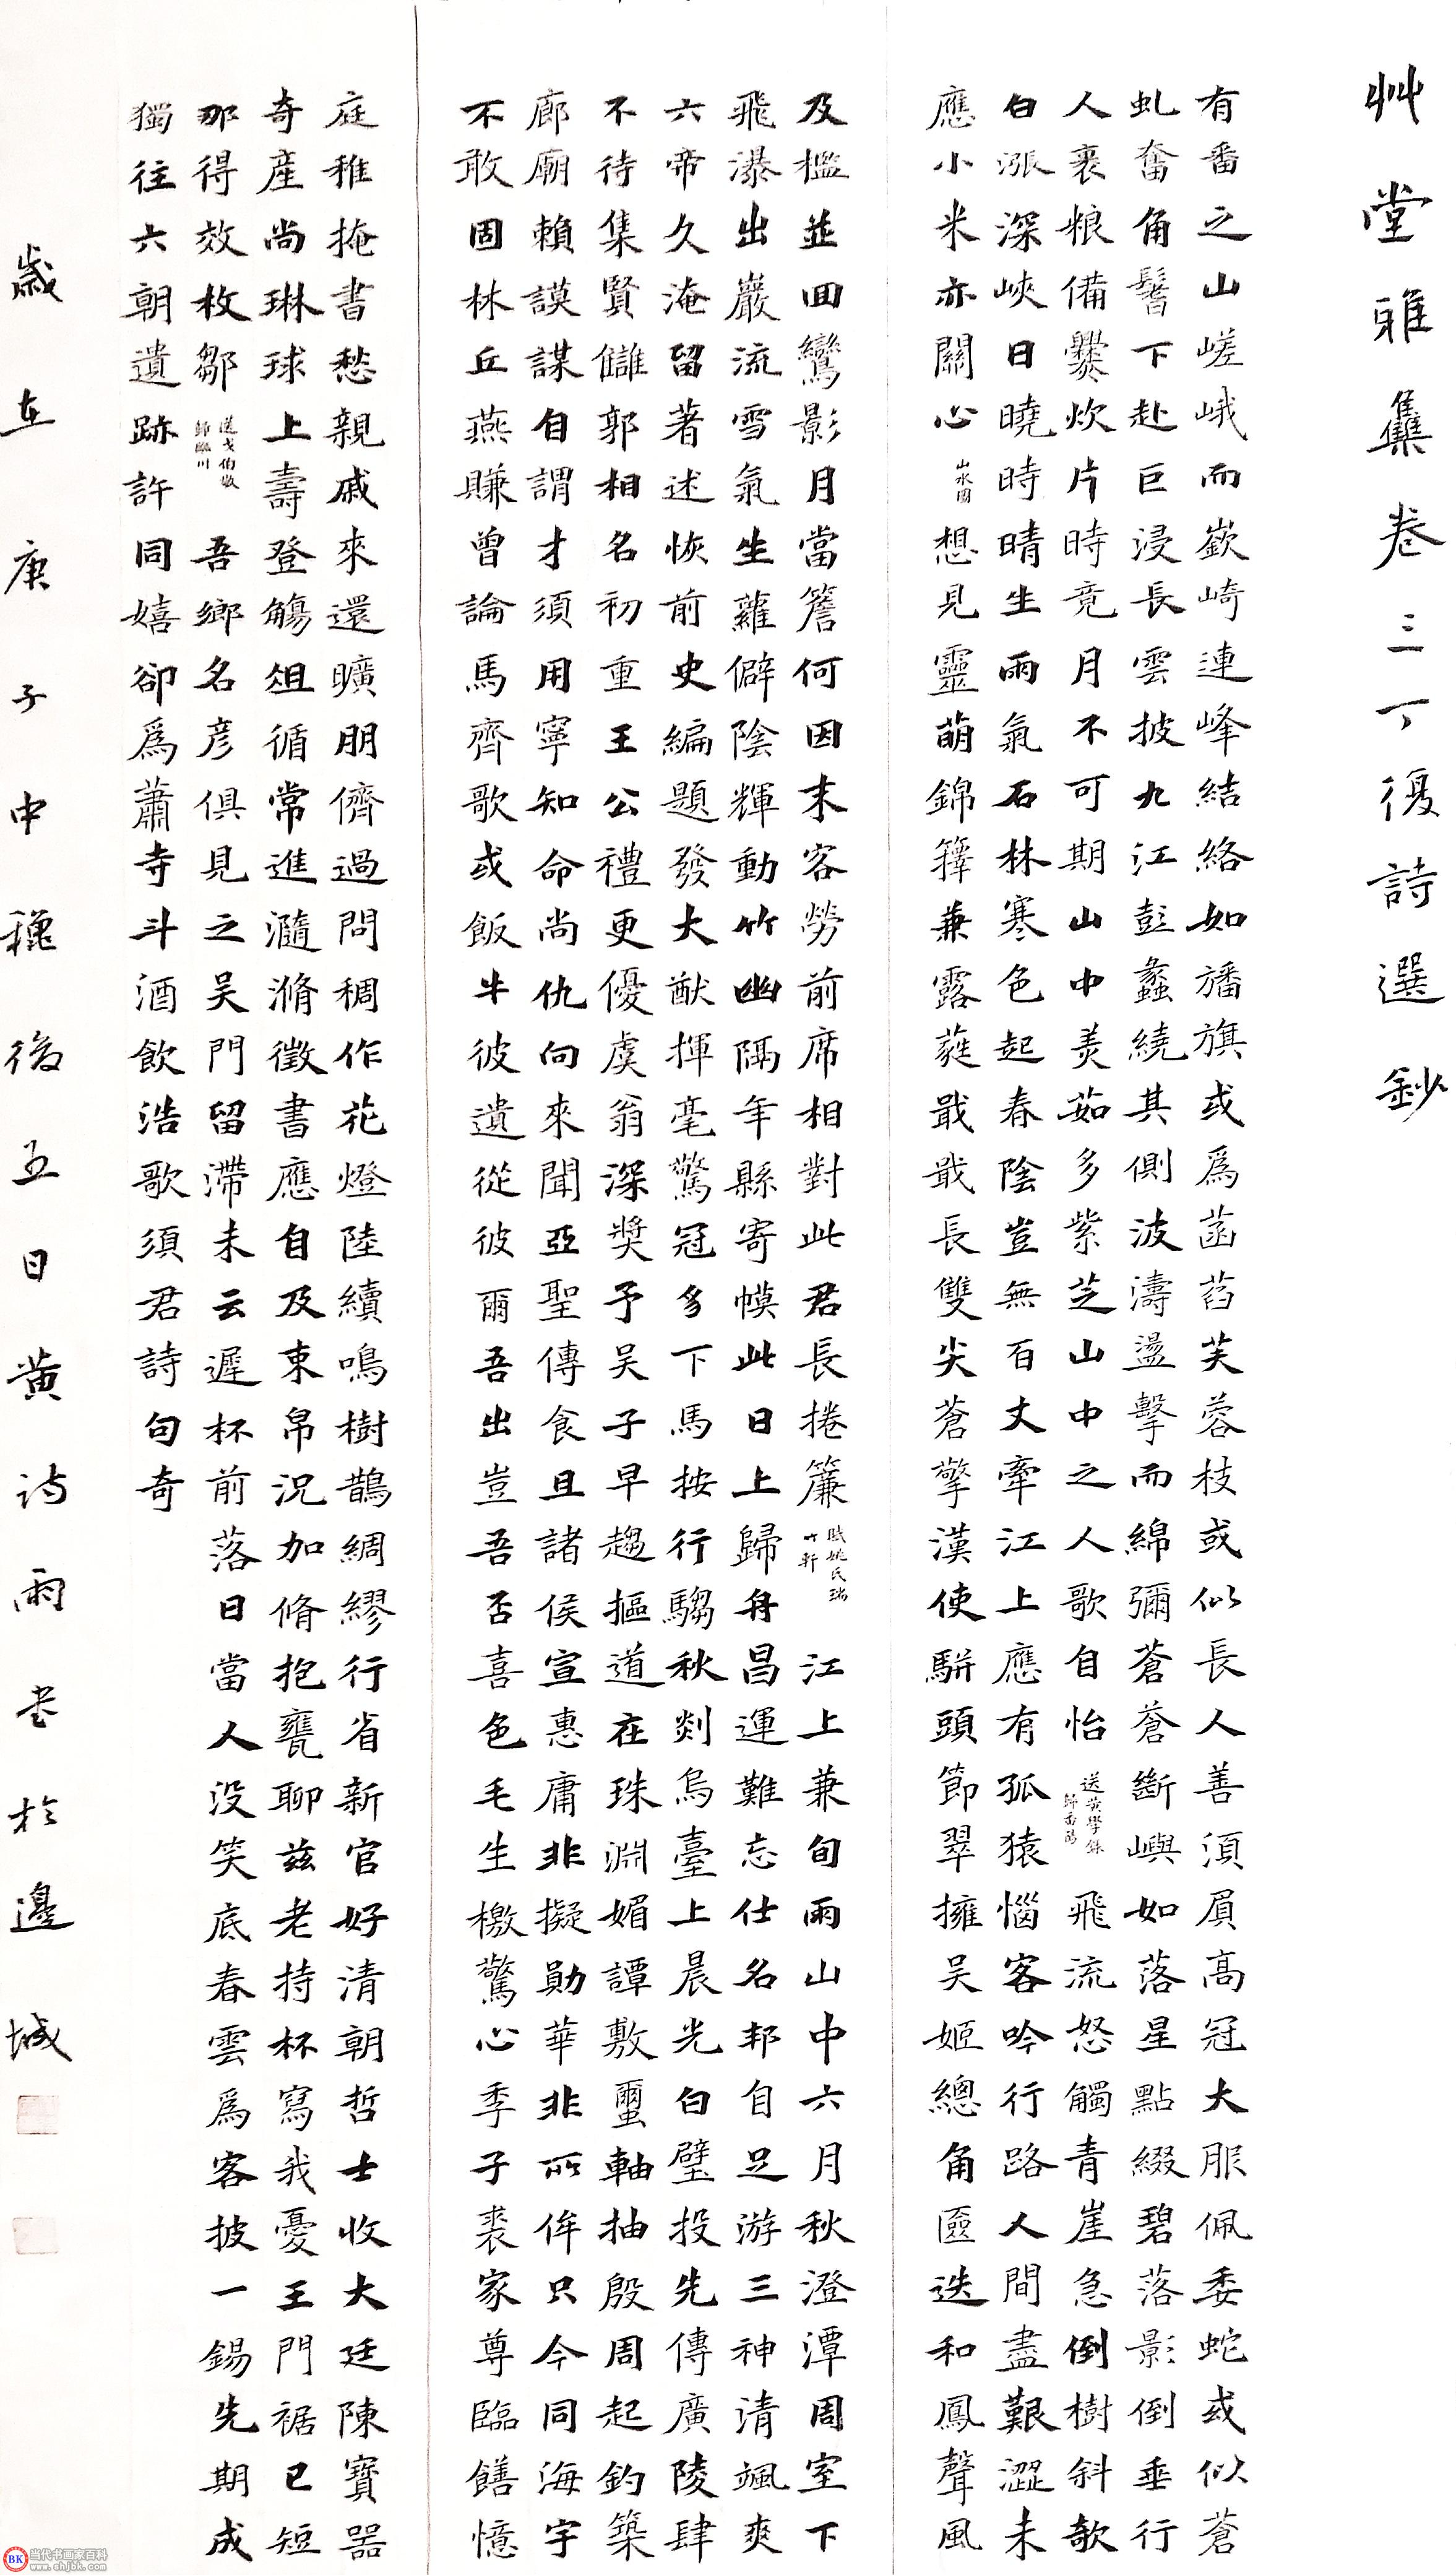 艸堂雅集卷三丁復詩選鈔
有番之山嵯峨而嶔崎連峰結絡如旛旗或爲菡萏芙蓉枝或似長人善須眉高冠大服佩委蛇或似蒼
虬奮角鬐下赴巨浸長雲披九江彭蠡繞其側波濤盪擊而綿彌蒼蒼斷嶼如落星點綴碧落影倒垂行
人裹粮備爨炊片時竟月不可期山中羙茹多紫芝山中之人歌自怡
送黃學錄
歸番陽
飛流怒觸青崖急倒樹斜欹
白漲深峽日曉時晴生雨氣石林寒色起春陰豈無百丈牽江上應有孤猿惱客吟行路人間盡艱澀未
應小米亦關心
山水圖
想見靈萌錦籜兼露蕤戢戢長雙尖蒼擎漢使駢頭節翠擁吴姬總角匳迭和鳳聲風
及檻並回鸞影月當簷何因末客勞前席相對此君長捲簾
賦姚氏瑞
竹軒
江上兼旬雨山中六月秋澄潭周室下
飛瀑出巖流雪氣生蘿僻陰輝動竹幽隔年縣寄幙此日上歸舟昌運難忘仕名邦自足游三神清颯爽
六帝久淹留著述恢前史編題發大猷揮毫驚冠多下馬按行騶秋剡烏臺上晨光白璧投先傳廣陵肆
不待集賢讎郭相名初重王公禮更優虞翁深奬予吴子早趨摳道在珠淵媚譚敷蠒軸抽殷周起釣築
廊廟賴謨謀自謂才須用寧知命尚仇向來聞亞聖傳食且諸侯宣惠庸非擬勛華非所侔只今同海宇
不敢固林丘燕賺曾論馬齊歌或飯牛彼遺從彼爾吾出豈吾否喜色毛生檄驚心季子裘家尊臨饍憶
庭稚掩書愁親戚來還曠朋儕過問稠作花燈陸續鳴樹鵲綢繆行省新官好清朝哲士收大廷陳寶器
奇產尚琳球上壽登觴俎循常進瀡滫徵書應自及束帛況加脩抱甕聊兹老持杯寫我憂王門裾已短
那得效枚鄒
送戈伯敬
歸臨川
吾鄉名彦俱見之吴門留滯未云遲杯前落日當人没笑底春雲爲客披一錫先期成
獨往六朝遺跡許同嬉卻爲蕭寺斗酒飲浩歌須君詩句奇
歲在庚子中穐後五日黄诗雨书於邊城
当代书画家百科
www.shjbk.com